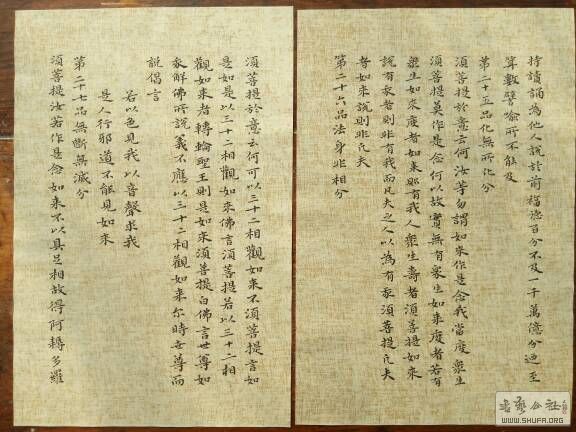 持讀誦為他人說於前福德百分不及一千萬億分迺至
算數譬喻所不能及
第二十五品化無所化分
須菩提於意云何汝等勿謂如來作是念我當度衆生
須菩提莫作是念何以故實無有衆生如來度者若有
衆生如來度者如來即有我人衆生壽者須菩提如來
說有我者則非有我而凡夫之人以為有我須菩提凡夫
者如來說則非凡夫
第二十六品法身非相分
須菩提於意云何可以三十二相觀如來不須菩提言如
是如是以三十二相觀如來佛言須菩提若以三十二相
觀如來者轉輪聖王則是如來須菩提白佛言世尊如
我解佛所說義不應以三十二相觀如來尔時世尊而
說偈言
若以色見我以音聲求我
是人行邪道不能見如來
第二十七品無斷無滅分
須菩提汝若作是念如來不以具足相故得阿耨多羅
WWW.SHUFA.ORG